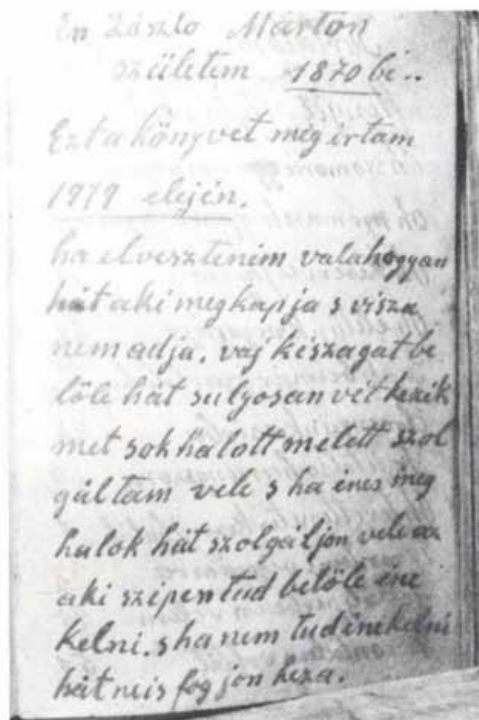 Én László Márton
születem 1870 bé..
Ezt a könyvet megirtam
1919 elején.
ha elveszteném valahogyan
hát aki megkapja s visza
nem adja, vaj kiszagat be
lőle hát sulyosan vétkezik
met sok halott melett szol
gáltam vele s ha énes meg
halok hát szolgáljon vele az
aki szépen tud belőle éne
kelni, s ha nem tud énekelni
hát neis fogjon heza.